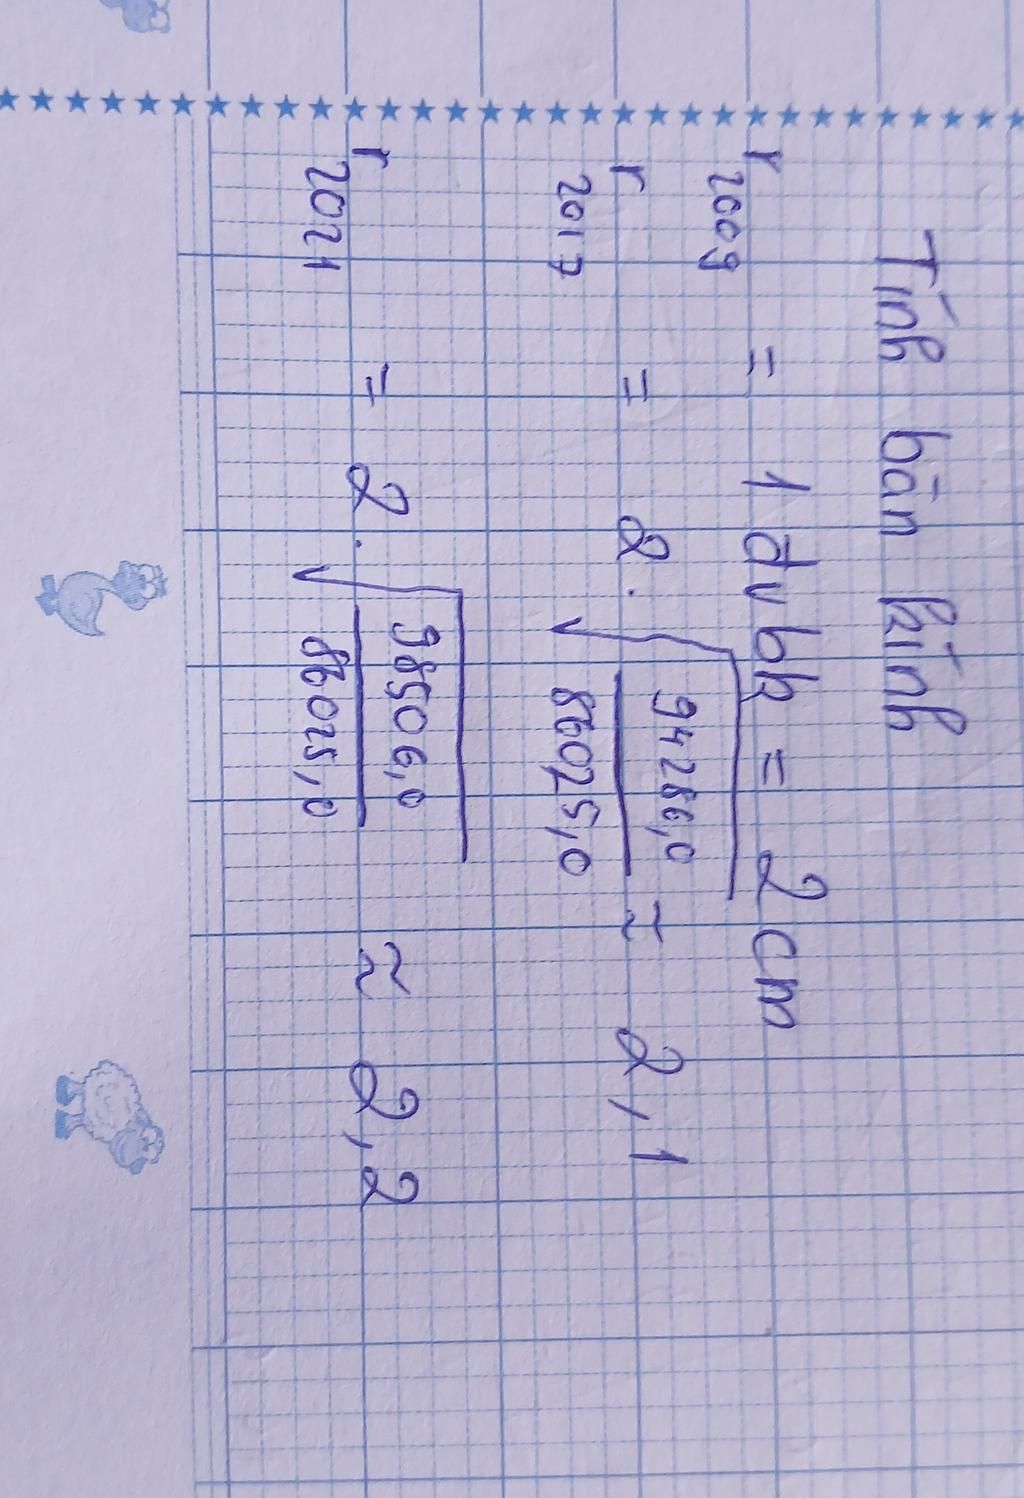 Tính bán kính
r 2009 = 1 đvbk = 2 cm
r 2017 = 2 . √ 94286,0 / 86025,0 ≈ 2,1
r 2021 = 2 . √ 98506,0 / 86025,0 ≈ 2,2